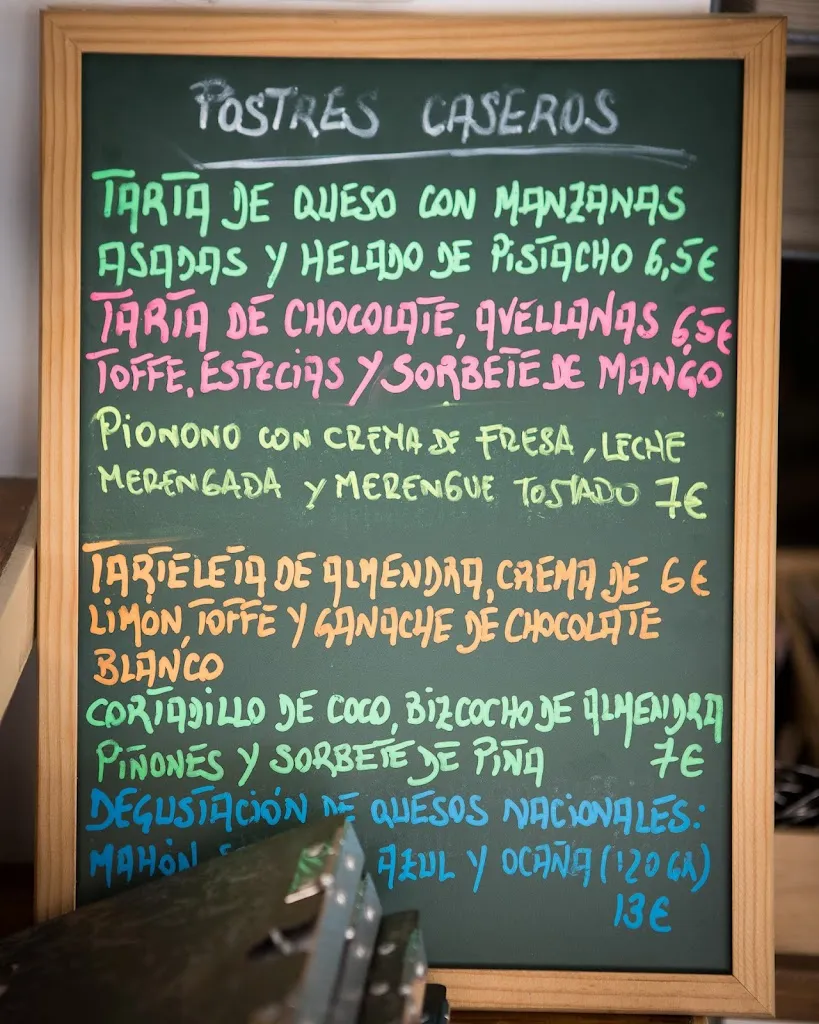 POSTRES CASEROS
TARTA DE QUESO CON MANZANAS
ASADAS Y HELADO DE PISTACHO 6,5€
TARTA DE CHOCOLATE, AVELLANAS 6,5€
TOFFE, ESPECIAS Y SORBETE DE MANGO
PIONONO CON CREMA DE FRESA, LECHE
MERENGADA Y MERENGUE TOSTADO 7€
TARTELETA DE ALMENDRA, CREMA DE 6€
LIMON, TOFFE Y GANACHE DE CHOCOLATE
BLANCO
CORTADILLO DE COCO, BIZCOCHO DE ALMENDRA
PIÑONES Y SORBETE DE PIÑA 7€
DEGUSTACIÓN DE QUESOS NACIONALES:
MAHÓN AZUL Y OCAÑA (120 GR)
13€